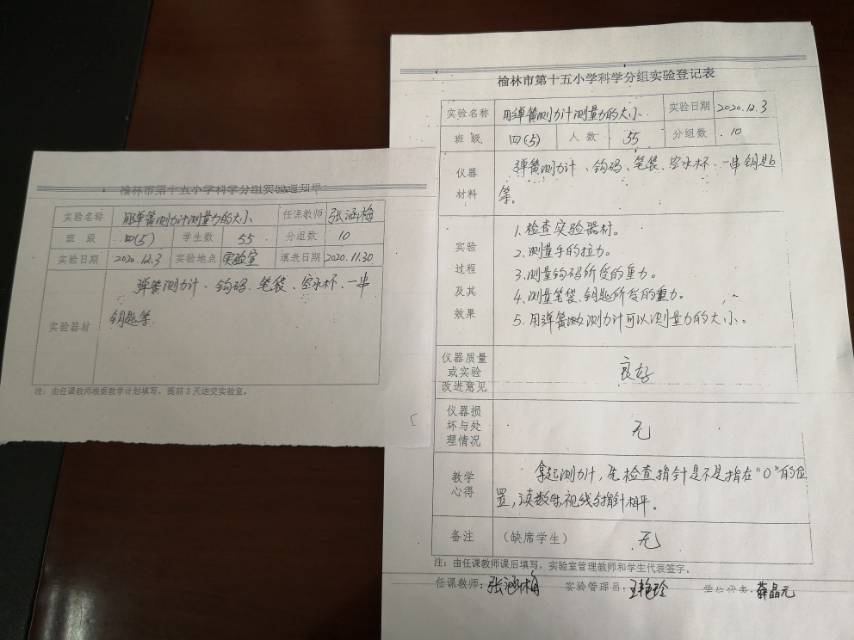 榆林市第十五小学科学分组实验通知单
实验名称 用弹簧测力计测量力的大小 任课教师 张涵梅
班级 四(5) 学生数 55 分组数 10
实验日期 2020.12.3 实验地点 实验室 填表日期 2020.11.30
实验器材 弹簧测力计、钩码、笔袋、空水杯、一串
钥匙等
注:由任课教师根据教学计划填写,提前3天送交实验室。
榆林市第十五小学科学分组实验登记表
实验名称 用弹簧测力计测量力的大小 实验日期 2020.12.3
班级 四(5) 人数 55 分组数 10
仪器材料 弹簧测力计、钩码、笔袋、空水杯、一串钥匙
等。
实验过程及其效果
1.检查实验器材。
2.测量手的拉力。
3.测量钩码所受的重力。
4.测量笔袋、钥匙所受的重力。
5.用弹簧测力计可以测量力的大小。
仪器质量或实验改进意见 良好
仪器损坏与处理情况 无
教学心得 拿起测力计,先检查指针是不是指在"0"的位
置,读数时视线与指针相平。
备注 (缺席学生) 无
注:由任课教师课后填写,实验室管理教师和学生代表签字。
任课教师:张涵梅 实验管理员:王艳玲 学生代表:薛晶元